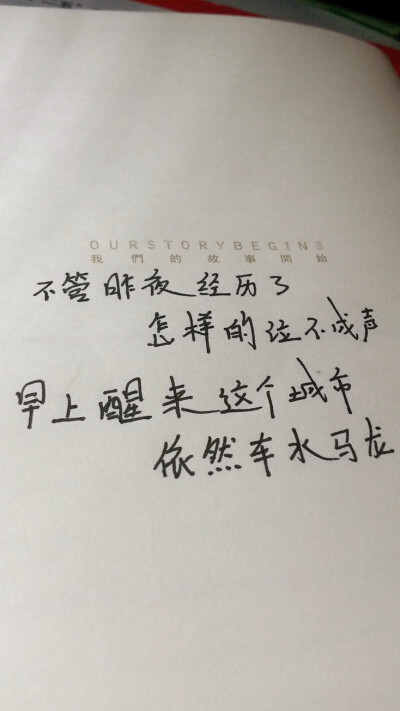 OURSTORYBEGINS
我們的故事開始
不管昨夜经历了
怎样的泣不成声
早上醒来这个城市
依然车水马龙